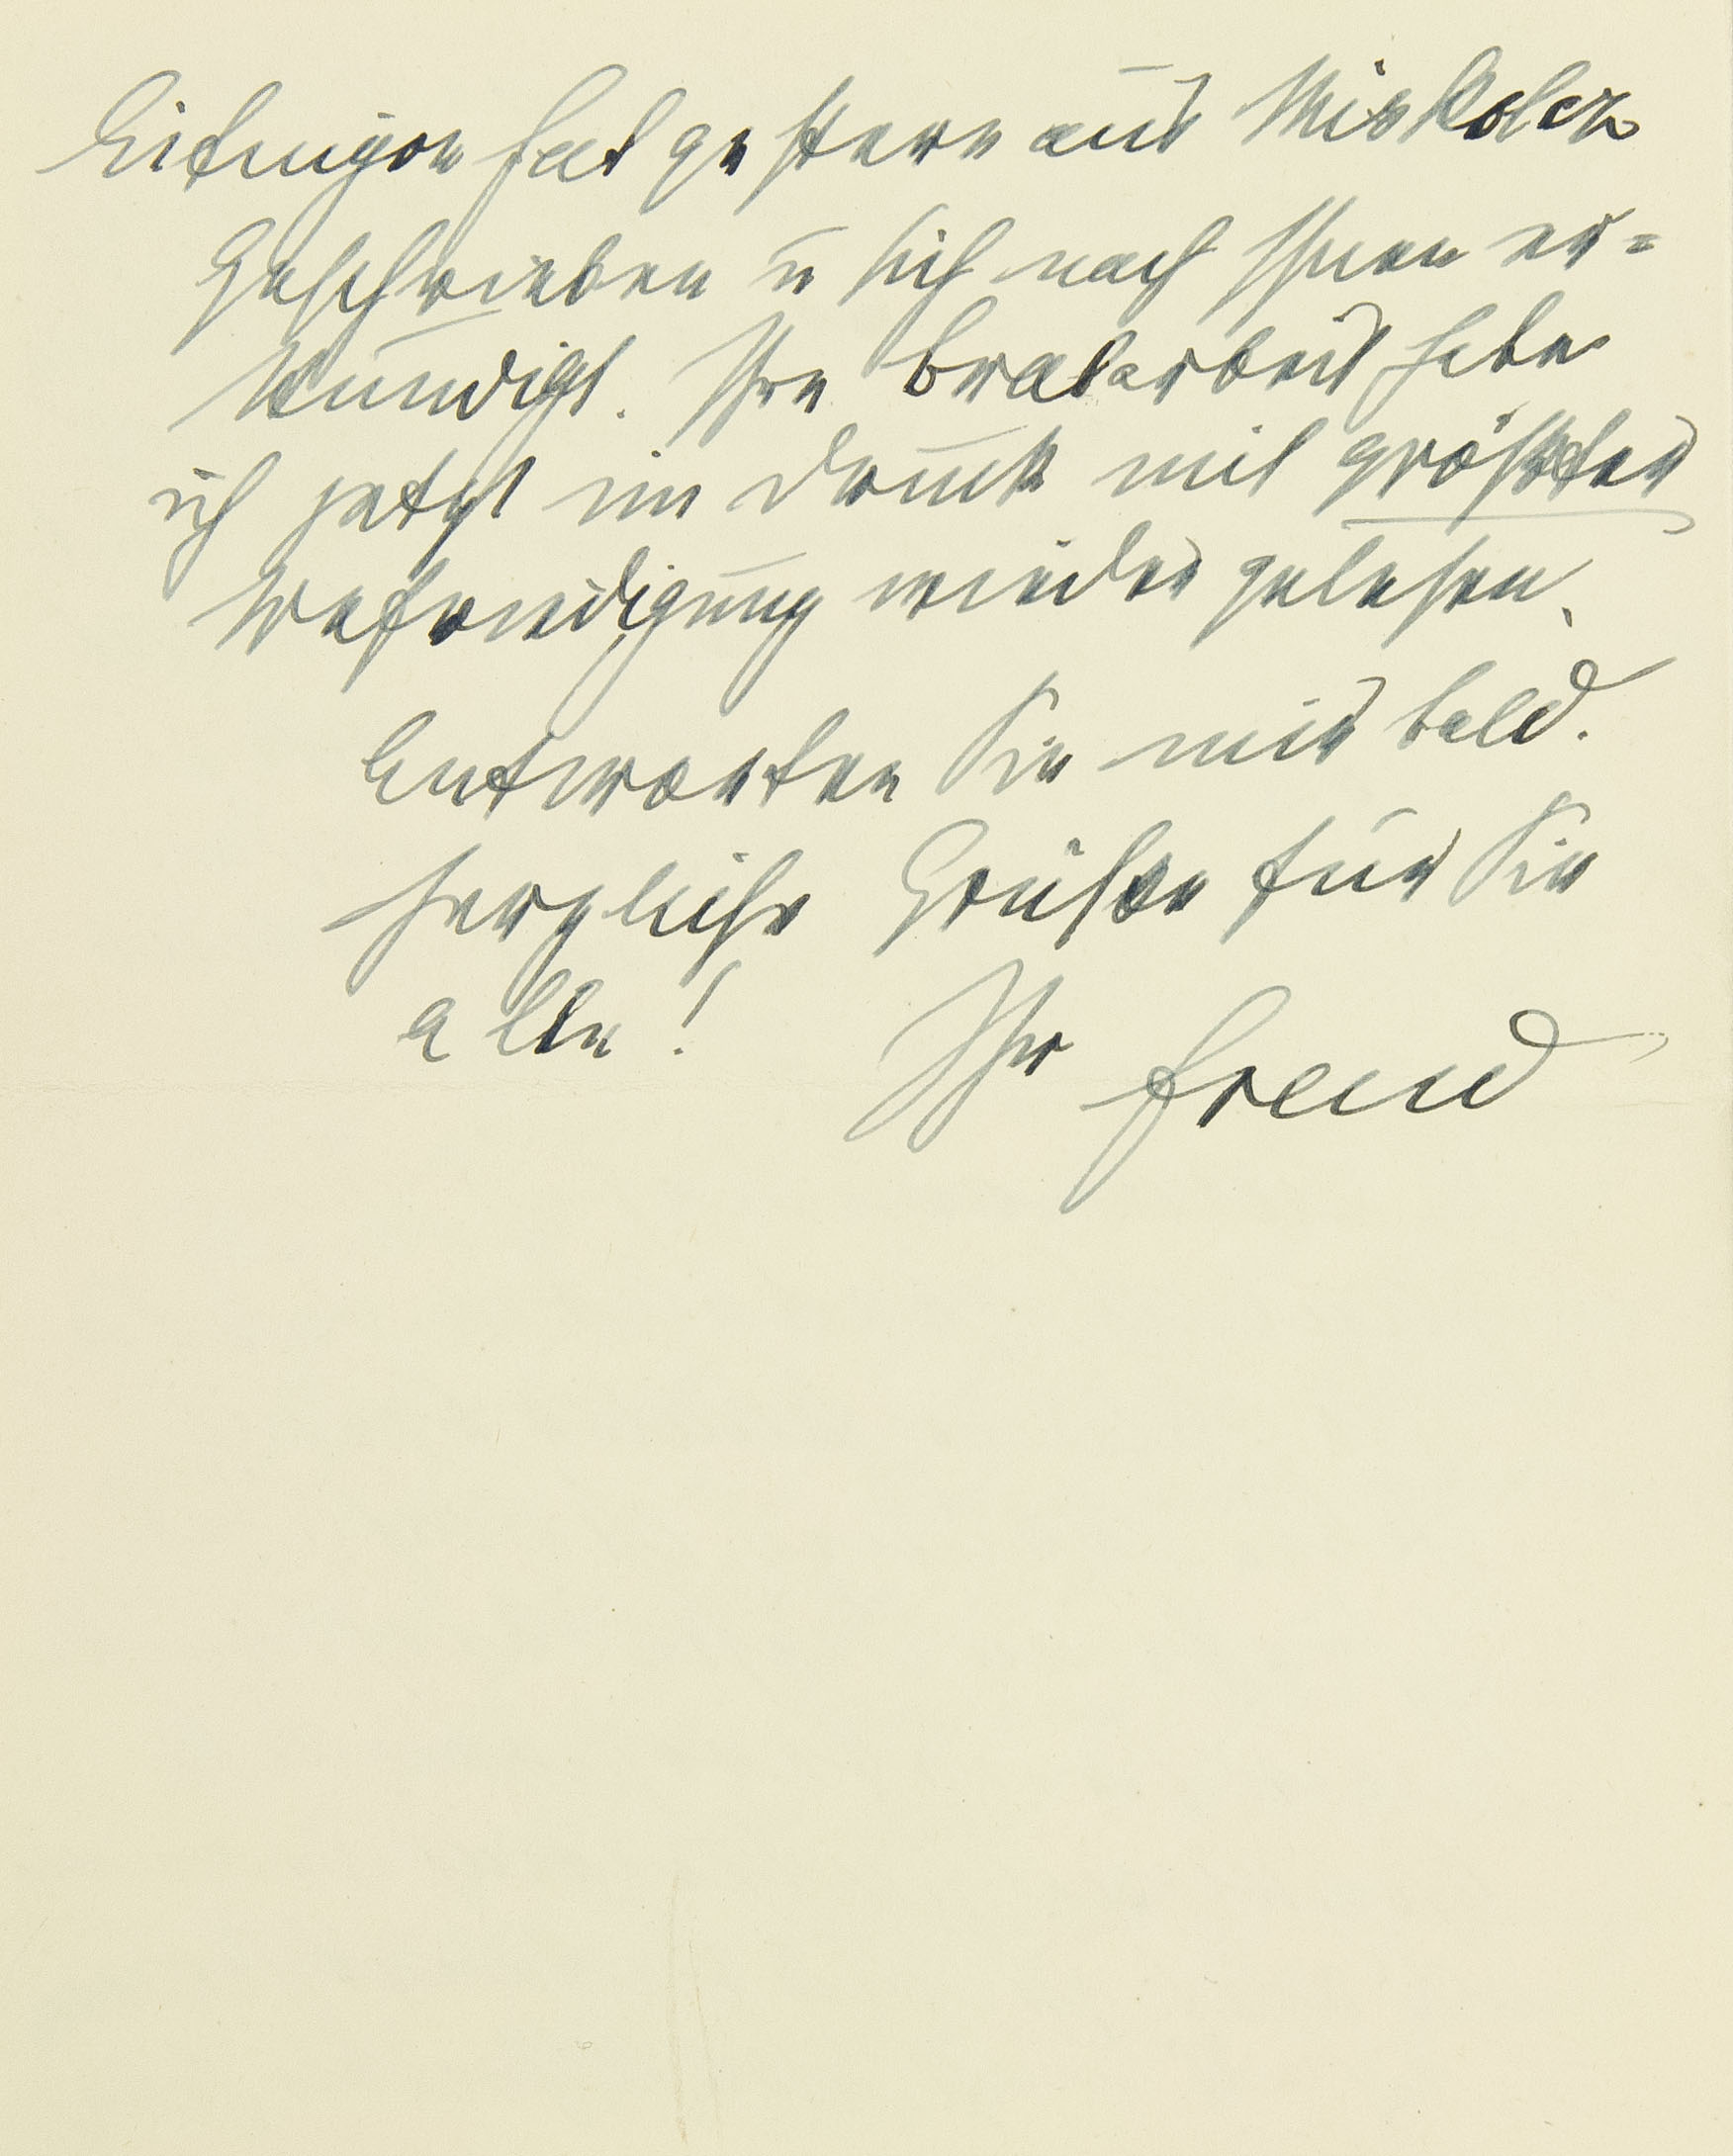 Eitingon hat gestern aus Miskolcz
geschrieben u sich nach Ihnen er=
kundigt. Ihre Oralarbeit habe
ich jetzt im Druck mit größter
Befriedigung wieder gelesen.
Antworten Sie mir bald.
Herzliche Grüße für Sie
alle! Ihr Freud